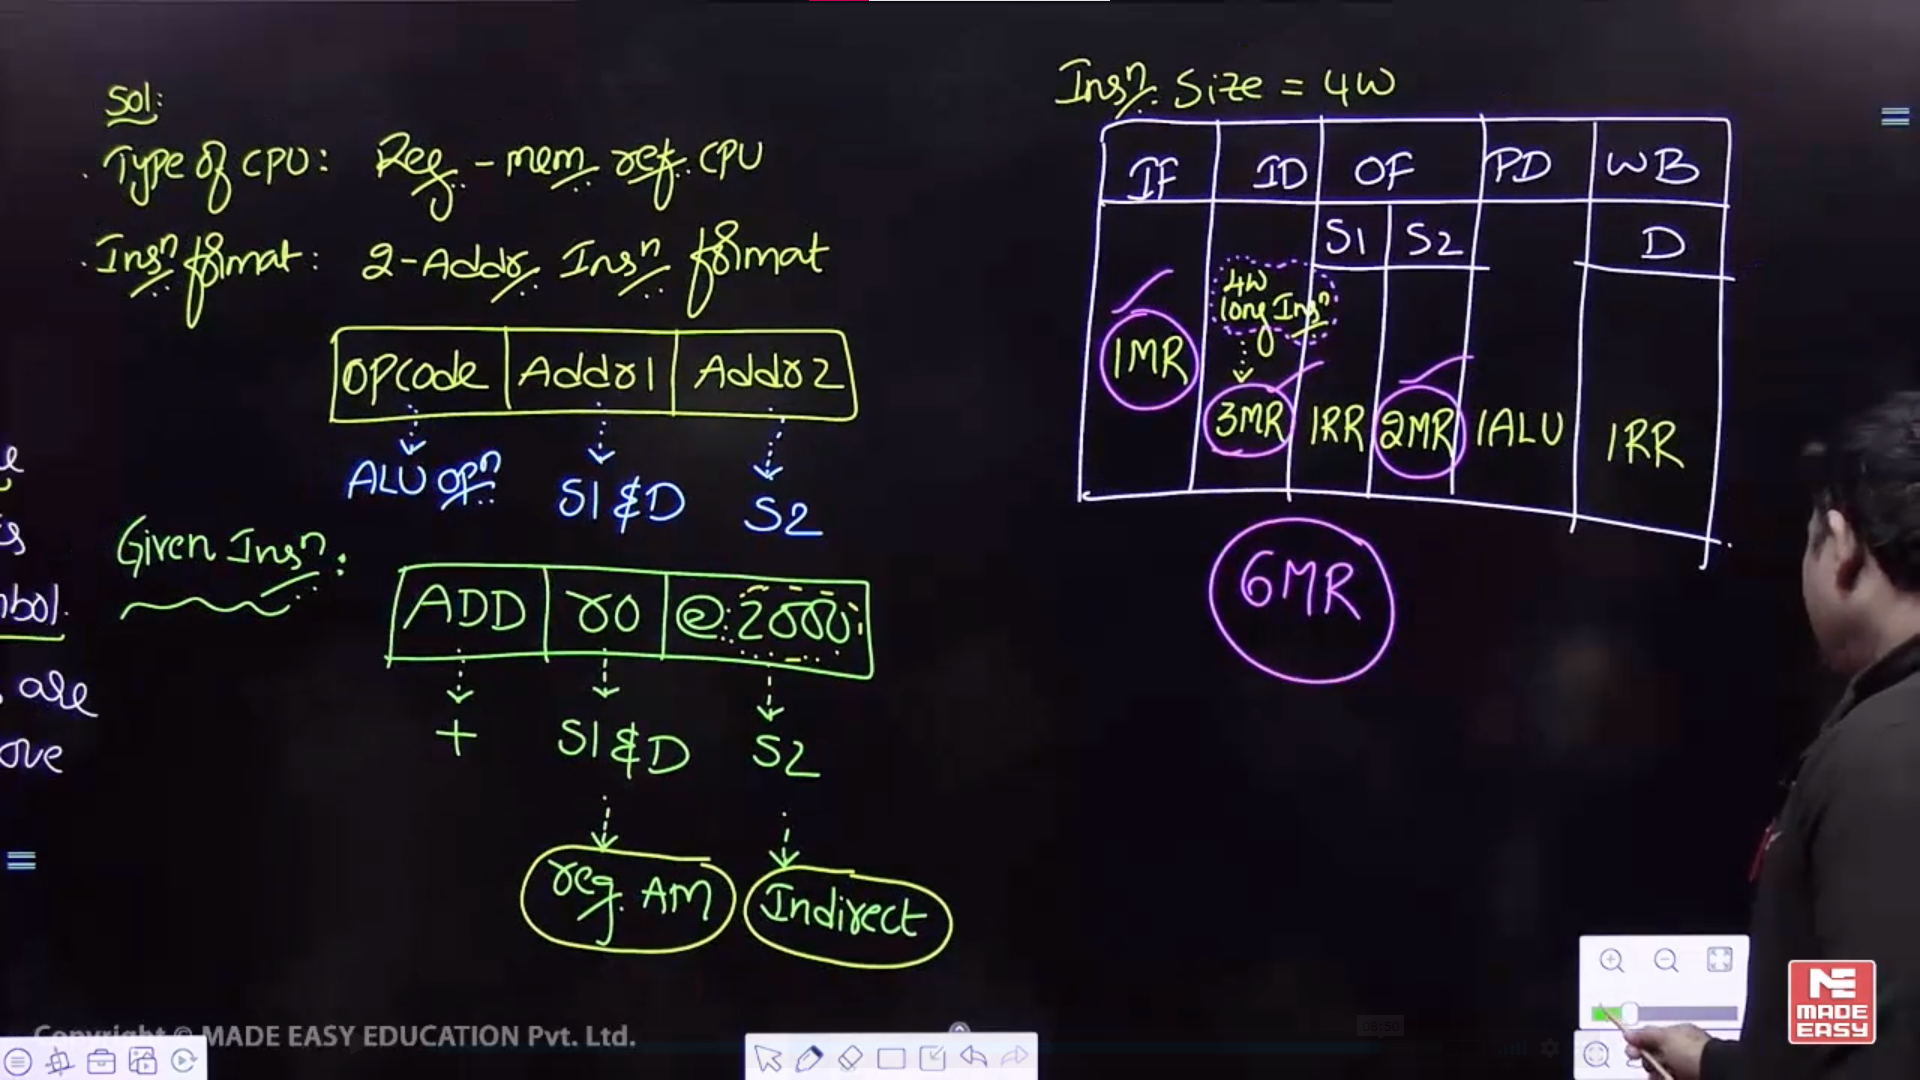 Sol:
Type of CPU: Reg-mem ref. CPU
Insn format: 2-Addr Insn format
OPCode Addr1 Addr2
ALU opn S1 & D S2
Given Insn:
ADD r0 @2000
+ S1 & D S2
reg. AM Indirect
is
mbol.
are
ove
Insn. Size = 4W
IF ID OF PD WB
S1 S2 D
4W
long Insn
1MR 3MR 1RR 2MR 1ALU 1RR
6MR
Copyright © MADE EASY EDUCATION Pvt. Ltd.
ME
MADE
EASY